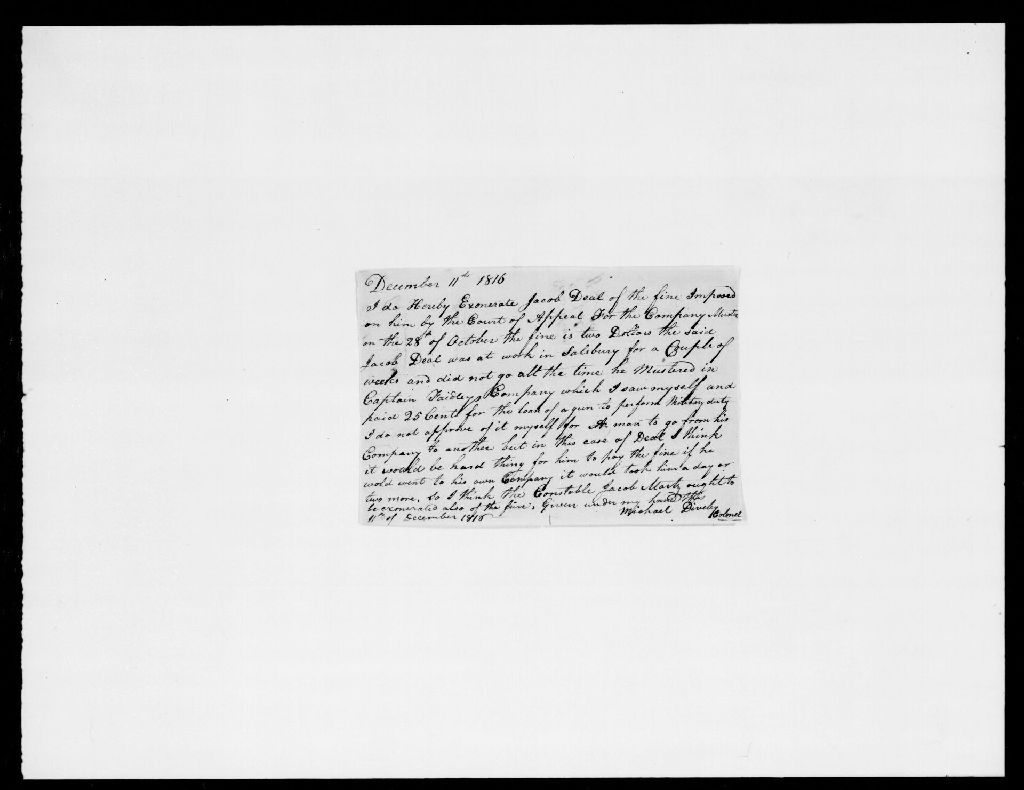 December 11th 1816
I do Hereby Exonerate Jacob Deal of the fine Imposed
on him by the Court of Appeal For the Company Muster
on the 28th of October the fine is two Dollars the said
Jacob Deal was at work in Salsbury for a Couple of
weeks and did not go all the time he Mustered in
Captain Company which I saw myself and
paid 25 Cents for the loan of a gun to perform Military duty
I do not approve of it myself for A man to go from his
Company to another but in this case of Deal I think
it would be hard thing for him to pay the fine if he
wold went to his own Company it would took him a day or
two more, So I think the Constible Jacob ought to
be exonerated also of the fine, Given under my hand this
11th of December 1816 Michael Dively Colonel